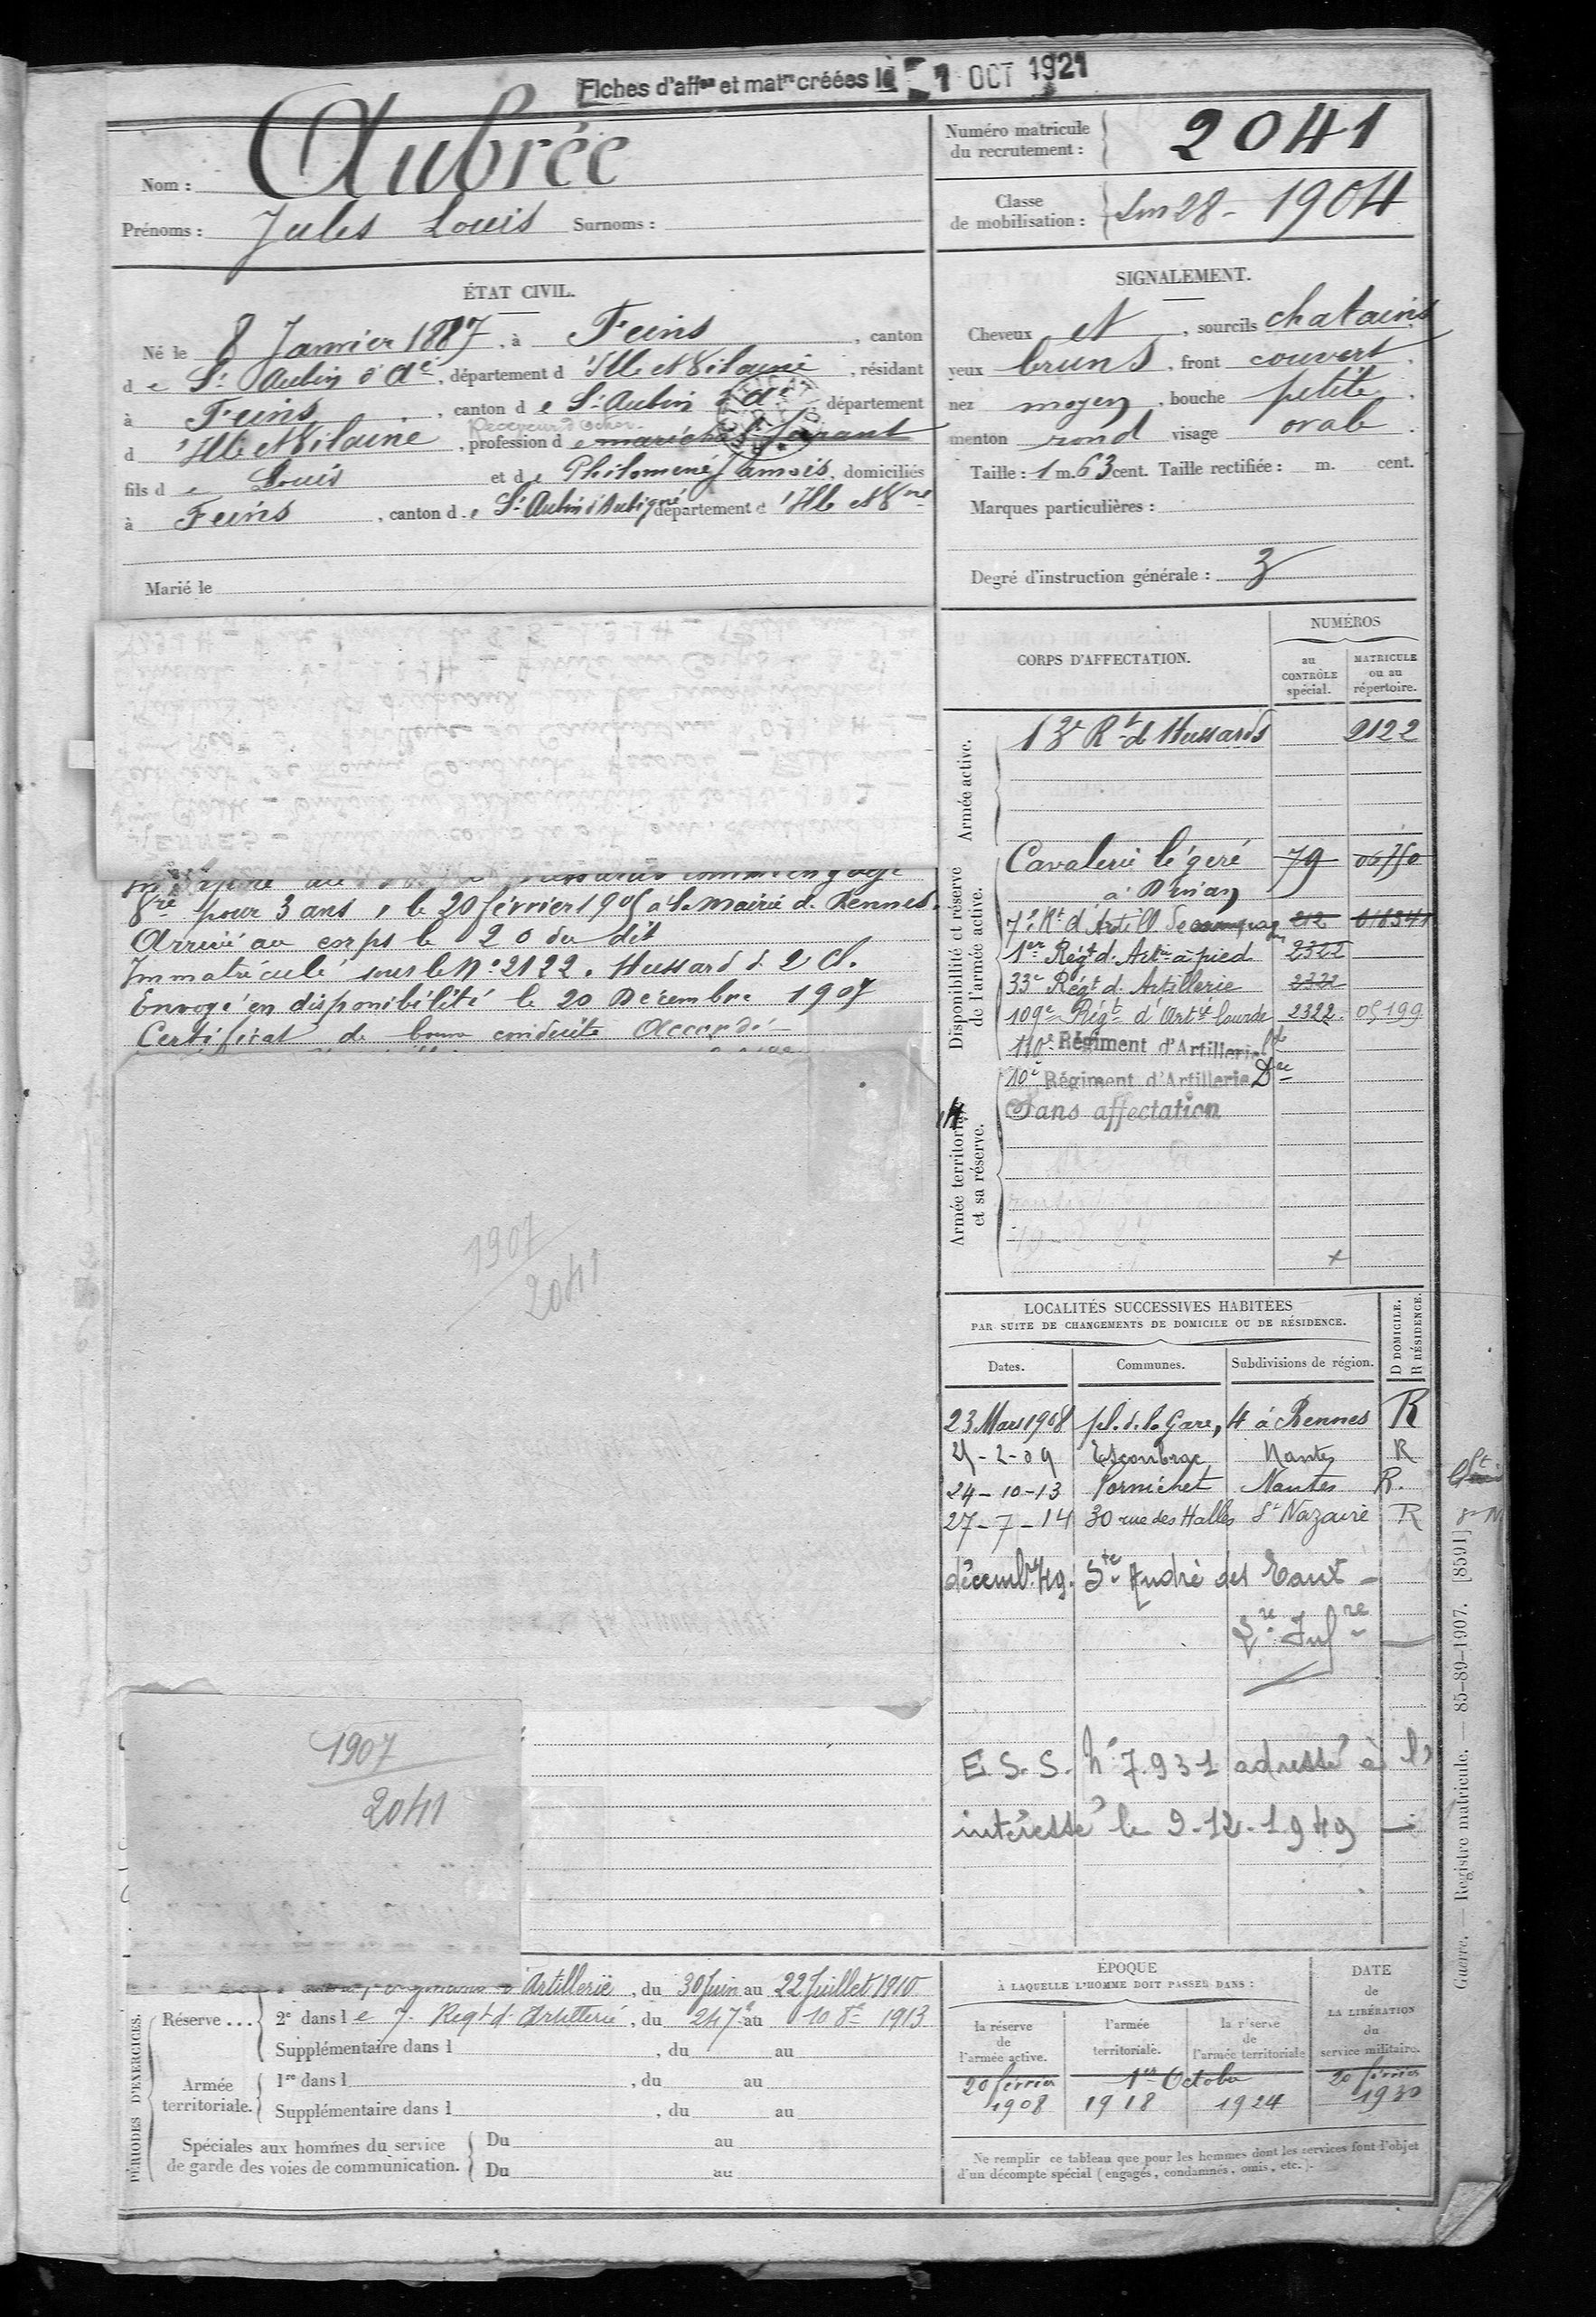 Fiches d'aff^on et mat^re créées le 1 OCT 1921
Nom : Aubrée
Prénoms : Jules Louis Surnoms :
Numéro matricule du recrutement : 2041
Classe de mobilisation : 28 - 1904
ÉTAT CIVIL.
Né le 8 Janvier 1887, à Feins, canton
de St Aubin d'A^é, département d'Ille et Vilaine, résidant
à Feins, canton de St Aubin d'A^é département
d'Ille et Vilaine, profession de maréchal ferrant
fils de Louis et de Philomène Jamois, domiciliés
à Feins, canton de St Aubin d'Aubigné département d'Ille et V^ne
Marié le
SIGNALEMENT.
Cheveux et, sourcils chatains
yeux bruns, front couvert.
nez moyen, bouche petite.
menton rond visage ovale.
Taille : 1 m. 63 cent. Taille rectifiée : m. cent.
Marques particulières :
Degré d'instruction générale : 3
CORPS D'AFFECTATION.
NUMÉROS
au CONTRÔLE spécial.
MATRICULE ou au répertoire.
Armée active.
13e Rt de Hussards 2122
Disponibilité et réserve de l'armée active.
Cavalerie légère 79
à Dinan
7e Rt d'Artill de campag 212
1er Régt d. Art^ie à pied 2322
33e Régt d. Artillerie 2322
109e Régt d'Art^ie lourde 2322 05199
110e Régiment d'Artillerie L^de
Armée territoriale et sa réserve.
10e Régiment d'Artillerie D^re
Sans affectation
V^re pour 3 ans, le 20 février 1905 à la mairie de Rennes.
Arrivé au corps le 20 du dit
Immatriculé sous le No 2122. Hussard d. 2 Cl.
Envoyé en disponibilité le 20 Décembre 1907
Certificat de bonne conduite Accordé
1907
2041
LOCALITÉS SUCCESSIVES HABITÉES
PAR SUITE DE CHANGEMENTS DE DOMICILE OU DE RÉSIDENCE.
D DOMICILE.
R RÉSIDENCE.
Dates. Communes. Subdivisions de région.
23 Mars 1908 pl. d. la Gare, 4 à Rennes R
-2-09 Escoublac Nantes R
24-10-13 Pornichet Nantes R.
27-7-14 30 rue des Halles St Nazaire R
décemb.49. St^e André des Eaux -
L^re Inf^re
E.S.S. N° 7.931 adressé à l'
intéressé le 9-12-1949 -
1907
2041
PÉRIODES D'EXERCICES.
Artillerie, du 30 Juin au 22 Juillet 1910
Réserve ... 2e dans le 7. Regt d'Artillerie, du 24 7^e au 10 8^e 1913
Supplémentaire dans l , du au
Armée territoriale. 1re dans l , du au
Supplémentaire dans l , du au
Spéciales aux hommes du service de garde des voies de communication. Du au
Du au
ÉPOQUE
À LAQUELLE L'HOMME DOIT PASSER DANS :
DATE de LA LIBÉRATION du service militaire.
la réserve de l'armée active.
l'armée territoriale.
la réserve de l'armée territoriale
20 février 1er Octobre 20 février
1908 1918 1924 1930
Ne remplir ce tableau que pour les hommes dont les services font l'objet
d'un décompte spécial (engagés, condamnés, omis, etc.).
Guerre. — Registre matricule. — 85-89-1907. [8591]